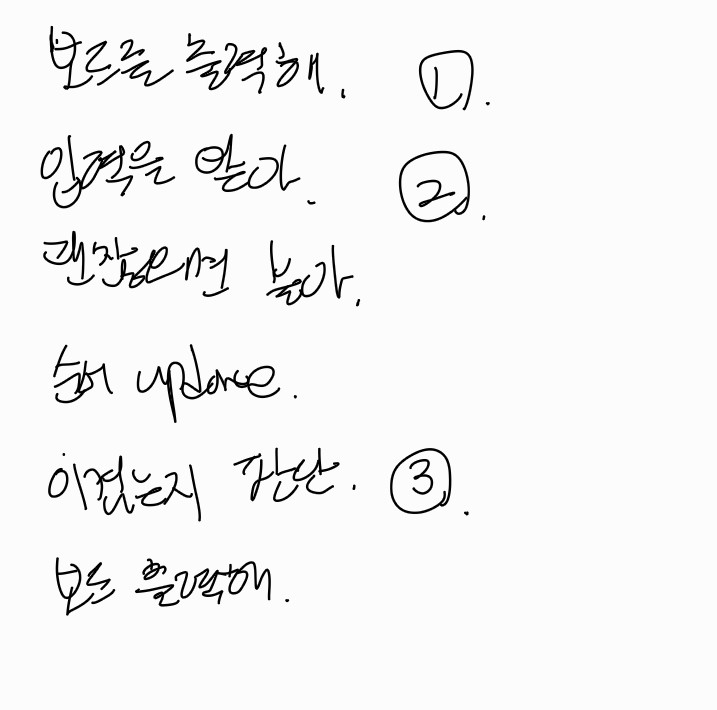 보드를 출력해. ①.
입력을 받아. ②.
괜찮으면 놓아.
순서 update.
이겼는지 판단. ③.
보드 출력해.